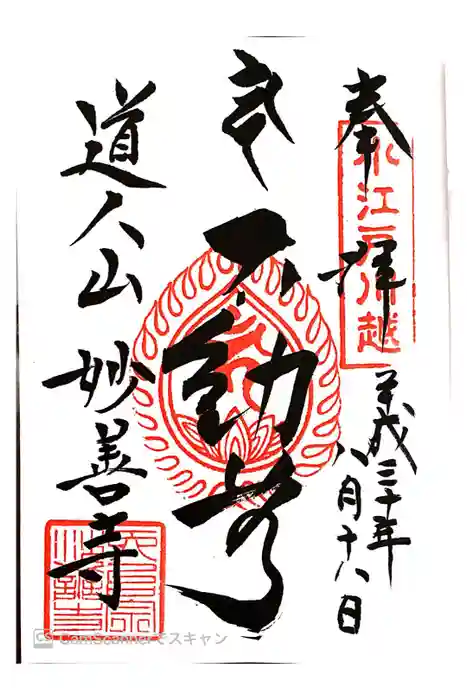 奉拝
小江戸川越
平成三十年
八月十八日
不動尊
道人山
妙善寺
CamScannerでスキャン